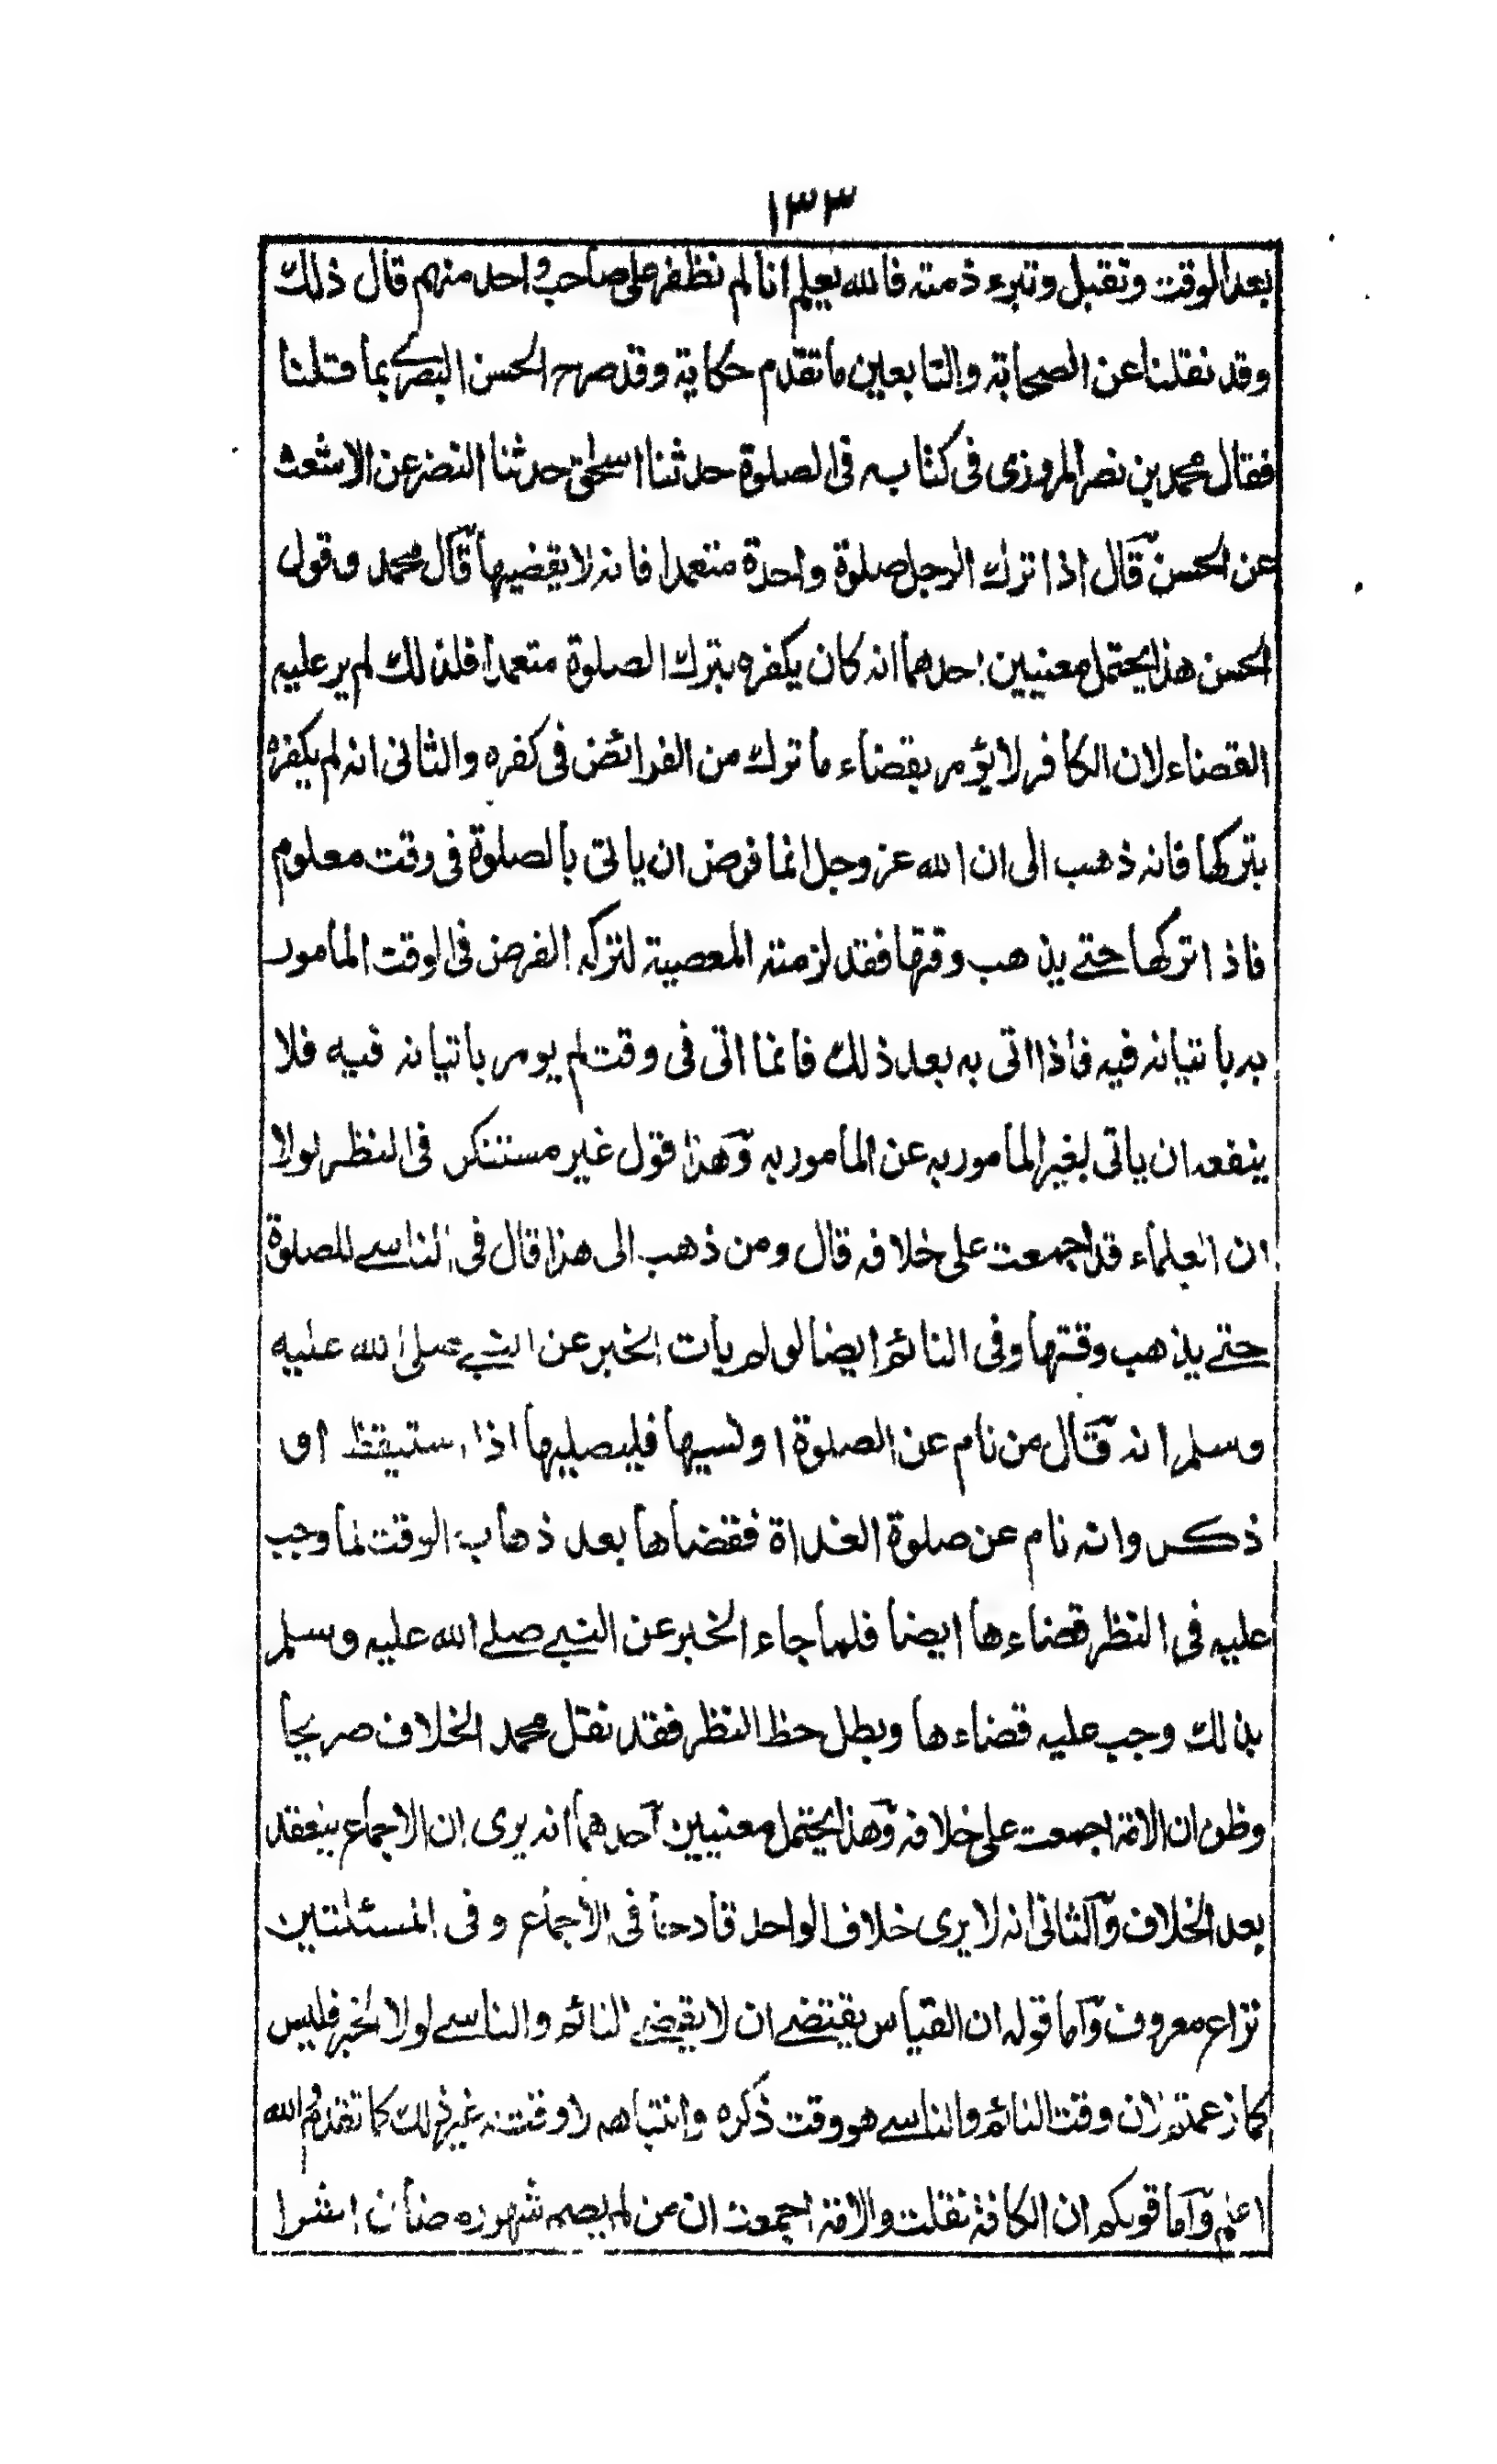 ١٣٣
بعد الوقت وتقبل وتبرء ذمته فالله يعلم انا لم نظفر على صاحب واحد منهم قال ذلك
وقد نقلنا عن الصحابة والتابعين ما تقدم حكاية وقد صرح الحسن البصرى بما قلنا
فقال محمد بن نصر المروزى فى كتابه فى الصلوة حدثنا اسحق حدثنا النضر عن الاشعث
عن الحسن قال اذا ترك الرجل صلوة واحدة متعمدا فانه لا يقضيها قال محمد وقول
الحسن هذا يحتمل معنيين احدهما انه كان يكفره بترك الصلوة متعمدا فلذلك لم ير عليه
القضاء لان الكافر لا يؤمر بقضاء ما ترك من الفرائض فى كفره والثانى انه لم يكفره
بتركها فانه ذهب الى ان الله عز وجل انما فرض ان ياتى بالصلوة فى وقت معلوم
فاذا تركها حتے يذهب وقتها فقد لزمته المعصية لتركه الفرض فى الوقت المامور
به باتيانه فيه فاذا اتى به بعد ذلك فانما اتى فى وقت لم يومر باتيانه فيه فلا
ينفعه ان ياتى بغير المامور به عن المامور به وهذا قول غير مستنكر فى النظر لولا
ان العلماء قد اجمعت على خلافه قال ومن ذهب الى هذا قال فى الناسے للصلوة
حتے يذهب وقتها وفى النائم ايضا لو لم يات الخبر عن النبے صلى الله عليه
وسلم انه قال من نام عن الصلوة او نسيها فليصليها اذا استيقظ او
ذكر وانه نام عن صلوة الغداة فقضاها بعد ذهاب الوقت لما وجب
عليه فى النظر قضاءها ايضا فلما جاء الخبر عن النبے صلے الله عليه وسلم
بذلك وجب عليه قضاءها وبطل حظ النظر فقد نقل محمد الخلاف صريحا
وظن ان الامة اجمعت على خلافه وهذا يحتمل معنيين احدهما انه يرى ان الاجماع ينعقد
بعد الخلاف والثانى انه لا يرى خلاف الواحد قادحا فى الاجماع وفى المسئلتين
نزاع معروف واما قوله ان القياس يقتضے ان لا يقضے النائم والناسے لولا الخبر فليس
كما زعمتم لان وقت النائم والناسے هو وقت ذكره وانتباهه لا وقت له غير ذلك كما تقدم والله
اعلم واما قولكم ان الكافة نقلت والامة اجمعت ان من لم يصم شهر رمضان اشرا